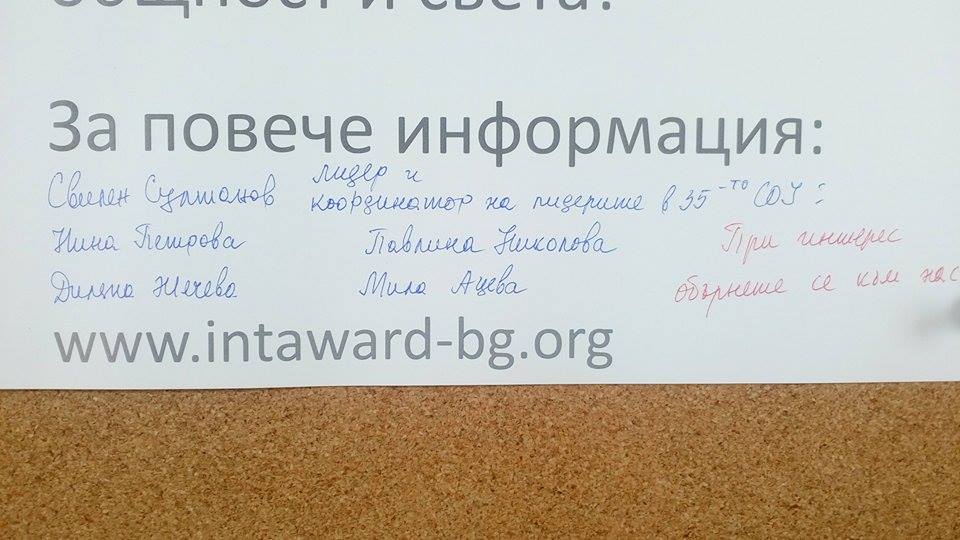 общност и света?
За повече информация:
Свилен Султанов лидер и
координатор на лидерите в 35-то СОУ:
Нина Петрова Павлина Николова При интерес
Диляна Жечева Мила Ацева обърнете се към нас
www.intaward-bg.org